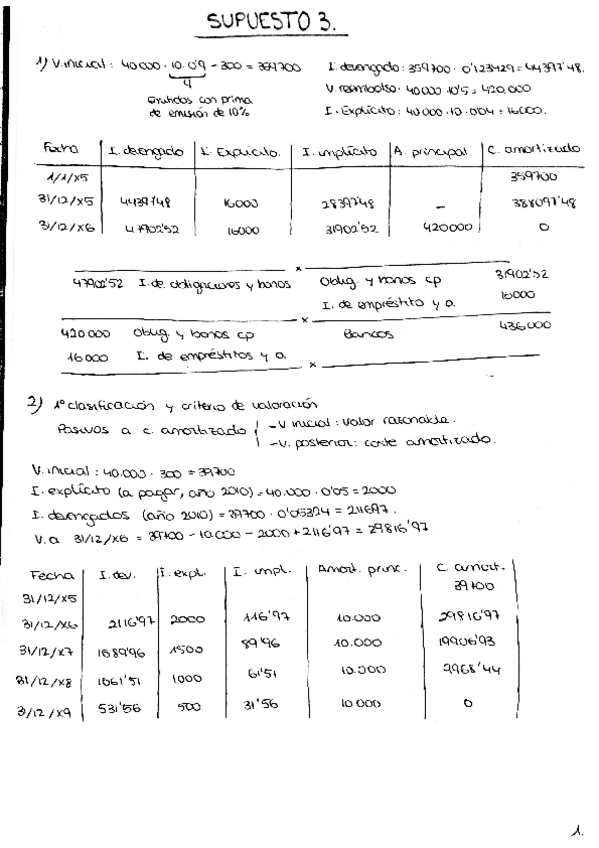 SUPUESTO 3.
1) V. inicial: 40.000 · 10 · 0'9 - 300 = 359700
Emitidos con prima
de emisión de 10%
I. devengado: 359700 · 0'123429 = 44397'48.
V. reembolso: 40000 · 10'5 = 420.000
I. Explícito: 40.000 · 10 · 0'04 = 16000.
Fecha I. devengado I. Explícito. I. implícito A. principal C. amortizado
1/1/x5 359700
31/12/x5 44397'48 16000 28397'48 - 388097'48
31/12/x6 47902'52 16000 31902'52 420000 0
x
47902'52 I. de obligaciones y bonos Oblig. y bonos cp 31902'52
I. de empréstito y o. 16000
x
420000 Oblig y bonos cp Bancos 436000
16000 I. de empréstitos y o.
x
2) 1º clasificación y criterio de valoración
Pasivos a c. amortizado - V. inicial: valor razonable.
- V. posterior: coste amortizado.
V. inicial: 40.000 - 300 = 39700
I. explícito (a pagar, año 2010) = 40.000 · 0'05 = 2000
I. devengados (año 2010) = 39700 · 0'05324 = 2116'97.
V. a 31/12/x6 = 39700 - 10.000 - 2000 + 2116'97 = 29816'97
Fecha I. dev. I. expl. I. impl. Amort. princ. C. amort.
31/12/x5 39700
31/12/x6 2116'97 2000 116'97 10.000 29816'97
31/12/x7 1589'96 1500 89'96 10.000 19906'93
31/12/x8 1061'51 1000 61'51 10.000 9968'44
31/12/x9 531'56 500 31'56 10.000 0
1.